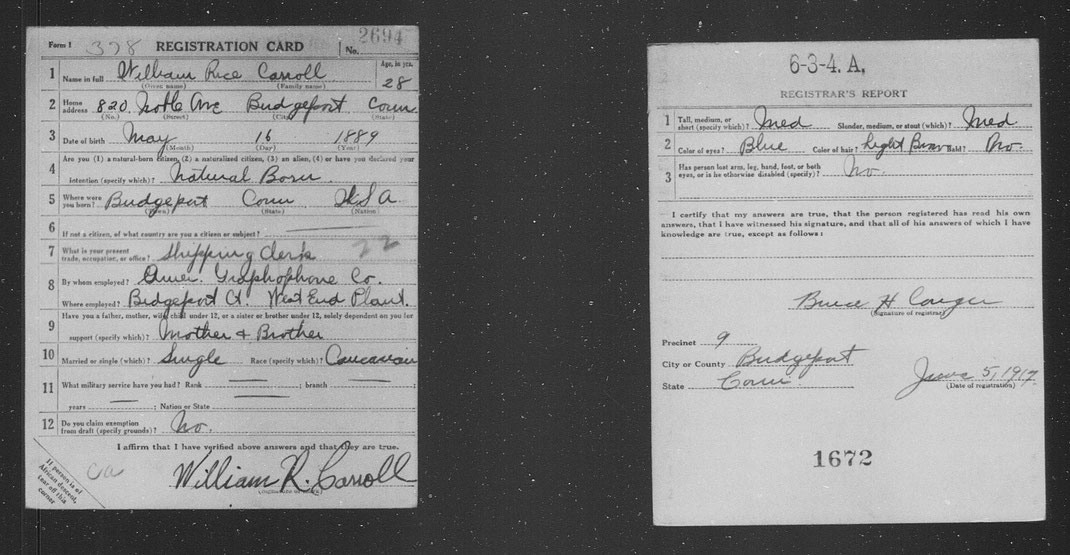 Form 1 378 REGISTRATION CARD No. 2694
1 Name in full William Rice Carroll Age, in yrs. 28
(Given name) (Family name)
2 Home address 820 Noble Ave Bridgeport Conn
(No.) (Street) (City) (State)
3 Date of birth May 16 1889
(Month) (Day) (Year)
4 Are you (1) a natural-born citizen, (2) a naturalized citizen, (3) an alien, (4) or have you declared your
intention (specify which)? Natural Born
5 Where were you born? Bridgeport Conn USA
(Town) (State) (Nation)
6 If not a citizen, of what country are you a citizen or subject?
7 What is your present trade, occupation, or office? Shipping Clerk 22
8 By whom employed? Amer. Graphophone Co.
Where employed? Bridgeport Ct. West End Plant.
9 Have you a father, mother, wife, child under 12, or a sister or brother under 12, solely dependent on you for
support (specify which)? Mother & Brother
10 Married or single (which)? Single Race (specify which)? Caucasian
11 What military service have you had? Rank — ; branch — ;
years — ; Nation or State —
12 Do you claim exemption from draft (specify grounds)? No.
I affirm that I have verified above answers and that they are true.
William R. Carroll
If person is of African descent, tear off this corner
6-3-4. A.
REGISTRAR'S REPORT
1 Tall, medium, or short (specify which)? Med Slender, medium, or stout (which)? Med
2 Color of eyes? Blue Color of hair? Light Brown Bald? No.
3 Has person lost arm, leg, hand, foot, or both eyes, or is he otherwise disabled (specify)? No.
I certify that my answers are true, that the person registered has read his own
answers, that I have witnessed his signature, and that all of his answers of which I have
knowledge are true, except as follows:
Bruce H Conger
(Signature of registrar)
Precinct 9
City or County Bridgeport
State Conn
June 5, 1917
(Date of registration)
1672